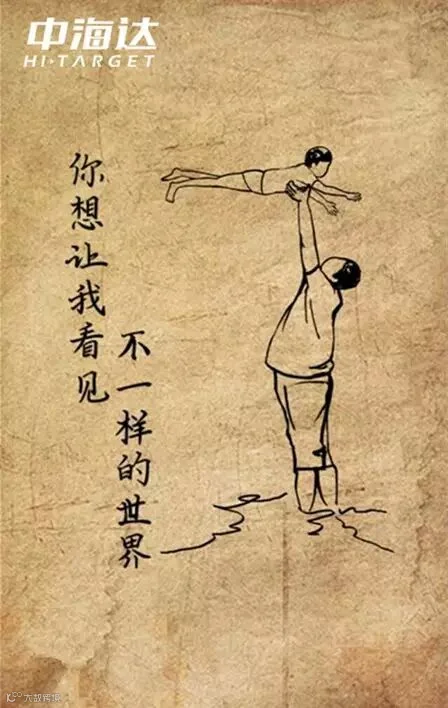 中海达
HI-TARGET
你想让我看见
不一样的世界